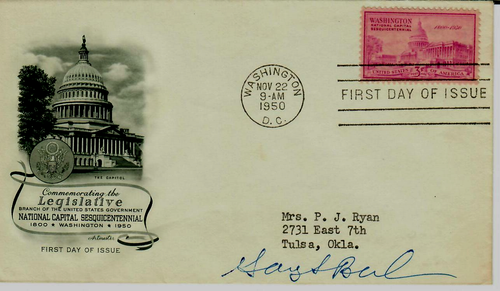 WASHINGTON
NATIONAL CAPITAL
SESQUICENTENNIAL
1800-1950
3¢
UNITED STATES OF AMERICA
WASHINGTON
NOV 22
9-AM
1950
D.C.
FIRST DAY OF ISSUE
THE CAPITOL
Commemorating the
Legislative
BRANCH OF THE UNITED STATES GOVERNMENT
NATIONAL CAPITAL SESQUICENTENNIAL
1800 ★ WASHINGTON ★ 1950
Artcraft
FIRST DAY OF ISSUE
Mrs. P. J. Ryan
2731 East 7th
Tulsa, Okla.